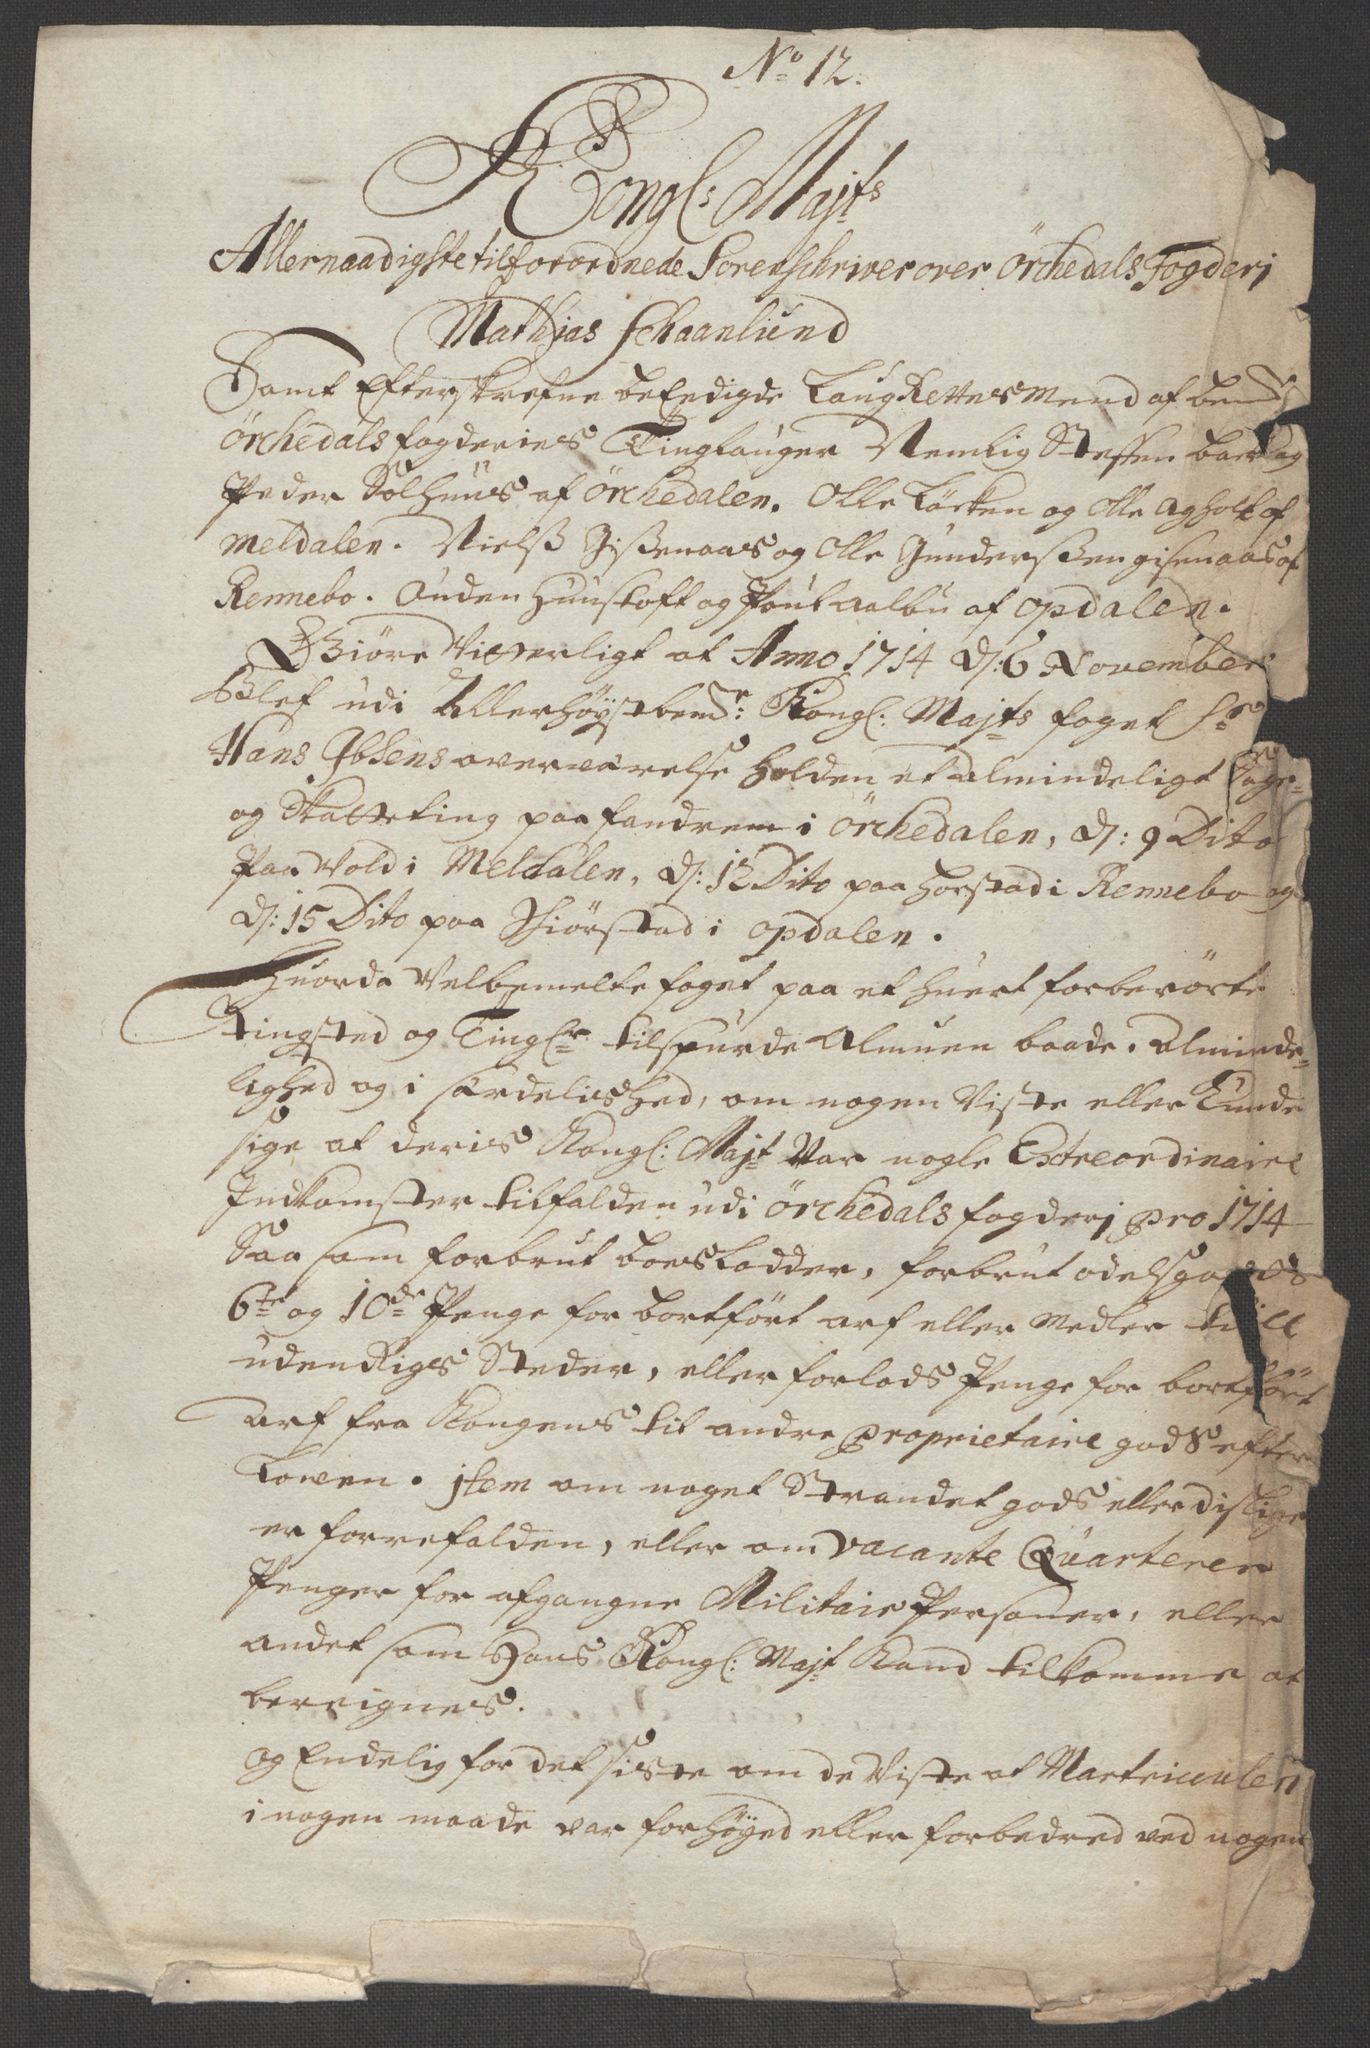 No 12.
Kongl: Majts
Allernaadigste tilforordnede Sorenschriver over Örchedals Fogderj
Mathias Schaanlund
Samt Efterskrefne beEedigde LaugRettesMend af bemte
Örchedals fogderies Tinglauger Nemlig Steffen og
Peder Solhuus af Örchedalen. Olle Löcken og Olle Agholt af
Meldalen. Nielss Gissenaas og Olle Gunderssen gisenaas af
Rennebo. Auden Huusloft og Poul Aalbu af Opdalen.
Giöre Vitterligt at Anno 1714 d: 6 November
Blef udi Allerhöystbemte: Kongl: Majts foget Sr
Hans Ibsens overværelse holden et almindeligt Sage-
og Skatteting paa fandrem i Örchedalen, d: 9 Dito
Paa Vold i Meldalen, d: 12 Dito paa Horstad i Rennebo og
d: 15 Dito paa Schiörstad i Opdalen.
Huorda Velbemelte foget paa et huert forberörte
Tingsted og Tinglr tilspurde Almuen baade i Alminde-
lighed og i særdelished, om nogen Viste eller Kunde
sige at deris Kongl: Majt Var nogle Extreordinaire
Indkomster tilfalden udi Örchedals fogderj pro 1714
Saa som forbrut boeslodder, forbrut odelsgoeds
6te og 10de Penge for bortfört arf eller Medler till
udenRigs Steder, eller forlods Penge for bortfört
arf fra Kongens til andre proprietaire gods efter
Loven. Item om noget Strandet gods eller dislige
er forrefalden, eller om vacante Quarteer
Penger for afgangne Militair Personer, eller
andet som Hans Kongl: Majt Kand tilkomme at
bereignes.
og Endelig for det siste om de Viste at Martriculen
i nogen maade var forhöyed eller forbedred ved nogen